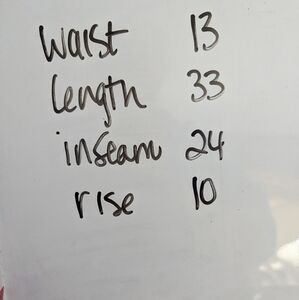 waist 13
length 33
inseam 24
rise 10